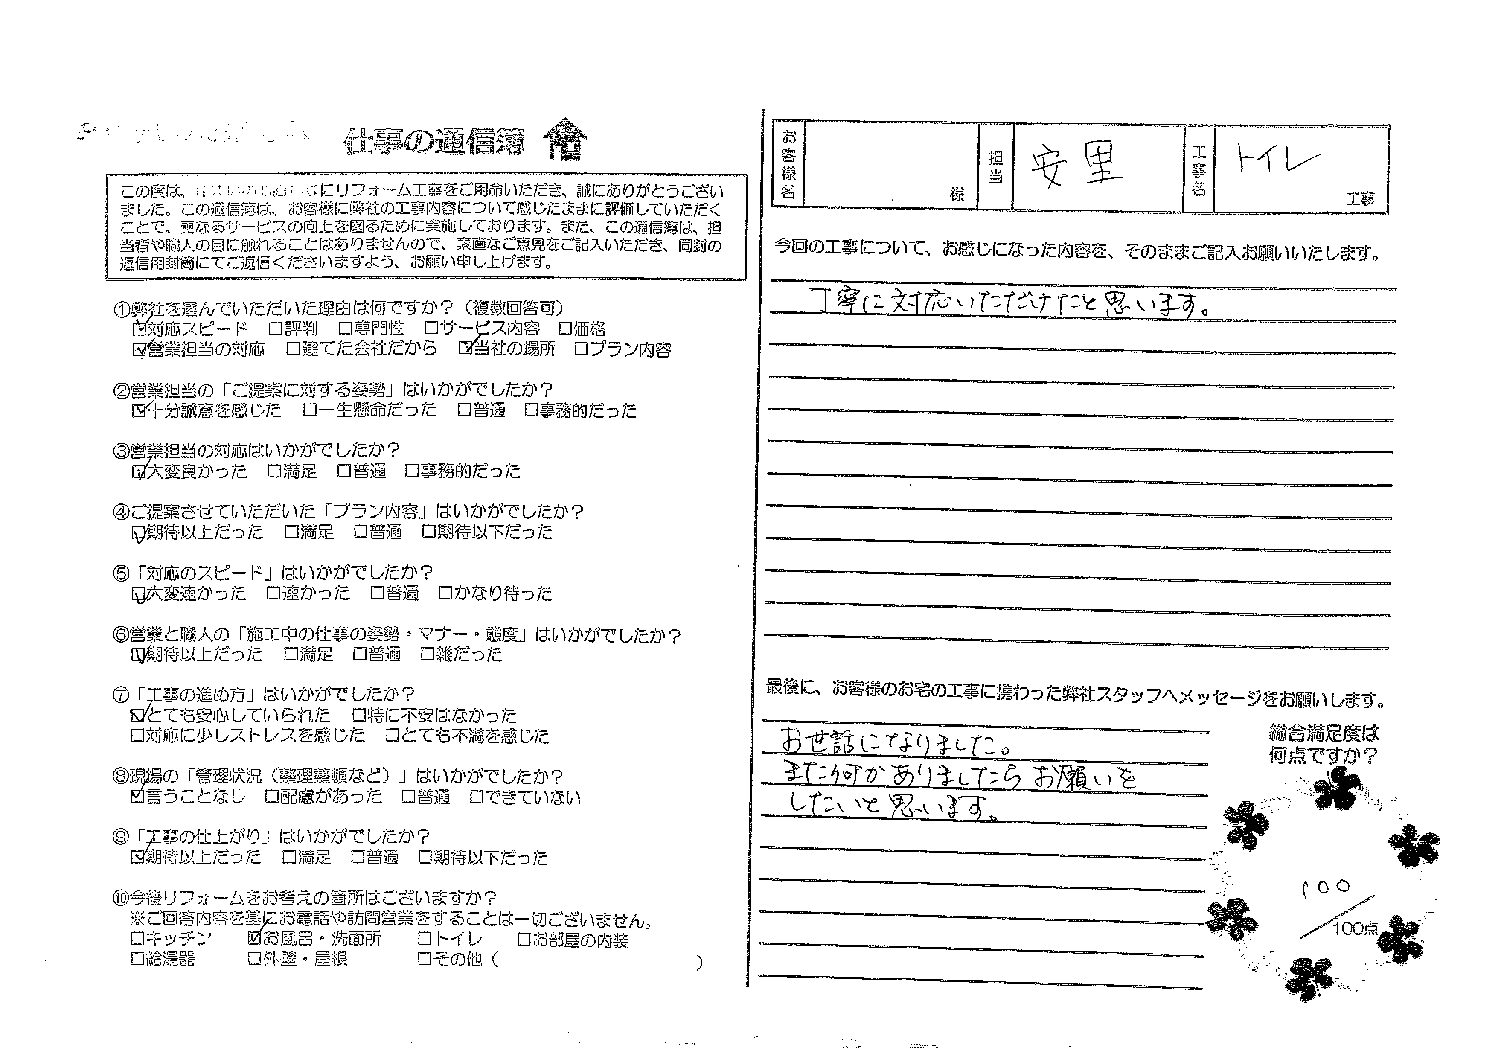 仕事の通信簿
この度は、にリフォーム工事をご用命いただき、誠にありがとうござい
ました。この通信簿は、お客様に弊社の工事内容について感じたままに評価していただく
ことで、更なるサービスの向上を図るために実施しております。また、この通信簿は、担
当者や職人の目に触れることはありませんので、率直なご意見をご記入いただき、同封の
通信用封筒にてご返信くださいますよう、お願い申し上げます。
①弊社を選んでいただいた理由は何ですか？（複数回答可）
☑対応スピード □評判 □専門性 □サービス内容 □価格
☑営業担当の対応 □建てた会社だから ☑当社の場所 □プラン内容
②営業担当の「ご提案に対する姿勢」はいかがでしたか？
☑十分誠意を感じた □一生懸命だった □普通 □事務的だった
③営業担当の対応はいかがでしたか？
☑大変良かった □満足 □普通 □事務的だった
④ご提案させていただいた「プラン内容」はいかがでしたか？
☑期待以上だった □満足 □普通 □期待以下だった
⑤「対応のスピード」はいかがでしたか？
☑大変速かった □速かった □普通 □かなり待った
⑥営業と職人の「施工中の仕事の姿勢・マナー・態度」はいかがでしたか？
☑期待以上だった □満足 □普通 □雑だった
⑦「工事の進め方」はいかがでしたか？
☑とても安心していられた □特に不安はなかった
□対応に少しストレスを感じた □とても不満を感じた
⑧現場の「管理状況（整理整頓など）」はいかがでしたか？
☑言うことなし □配慮があった □普通 □できていない
⑨「工事の仕上がり」はいかがでしたか？
☑期待以上だった □満足 □普通 □期待以下だった
⑩今後リフォームをお考えの箇所はございますか？
※ご回答内容を基にお電話や訪問営業をすることは一切ございません。
□キッチン ☑お風呂・洗面所 □トイレ □お部屋の内装
□給湯器 □外壁・屋根 □その他（ ）
お客様名 様 担当 安里 工事名 トイレ 工事
今回の工事について、お感じになった内容を、そのままご記入お願いいたします。
丁寧に対応いただけたと思います。
最後に、お客様のお宅の工事に携わった弊社スタッフへメッセージをお願いします。
お世話になりました。
また何かありましたらお願いを
したいと思います。
総合満足度は
何点ですか？
100
/100点